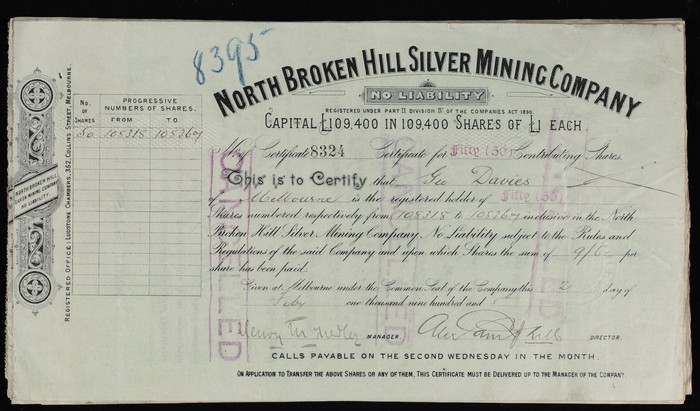 8395
NORTH BROKEN HILL SILVER MINING COMPANY
NO LIABILITY
REGISTERED UNDER PART II DIVISION OF THE COMPANIES ACT 1890
CAPITAL £109,400 IN 109,400 SHARES OF £1 EACH.
Certificate 8324 Certificate for Fifty (50) Contributing Shares.
This is to Certify that Geo Davies
of Melbourne is the registered holder of Fifty (50)
Shares numbered respectively from 105318 to 105367 inclusive in the North
Broken Hill Silver Mining Company, No Liability subject to the Rules and
Regulations of the said Company and upon which Shares the sum of 9/6 per
share has been paid.
Given at Melbourne under the Common Seal of the Company this 2 day of
Feby one thousand nine hundred and
MANAGER.
DIRECTOR.
CALLS PAYABLE ON THE SECOND WEDNESDAY IN THE MONTH.
ON APPLICATION TO TRANSFER THE ABOVE SHARES OR ANY OF THEM, THIS CERTIFICATE MUST BE DELIVERED UP TO THE MANAGER OF THE COMPANY.
CANCELLED
CANCELLED
NO. OF SHARES
PROGRESSIVE NUMBERS OF SHARES.
FROM TO
50 105318 105367
NORTH BROKEN HILL
SILVER MINING COMPANY
NO LIABILITY.
REGISTERED OFFICE: LUDSTONE CHAMBERS, 352, COLLINS STREET, MELBOURNE.